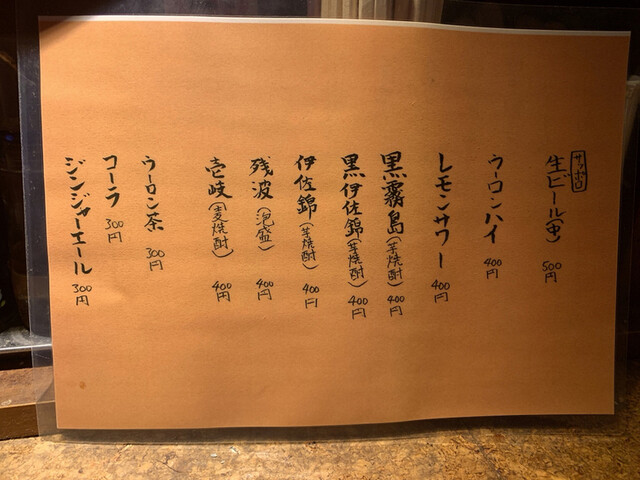 サッポロ
生ビール(中) 500円
ウーロンハイ 400円
レモンサワー 400円
黒霧島(芋焼酎) 400円
黒伊佐錦(芋焼酎) 400円
伊佐錦(芋焼酎) 400円
残波(泡盛) 400円
壱岐(麦焼酎) 400円
ウーロン茶 300円
コーラ 300円
ジンジャーエール 300円